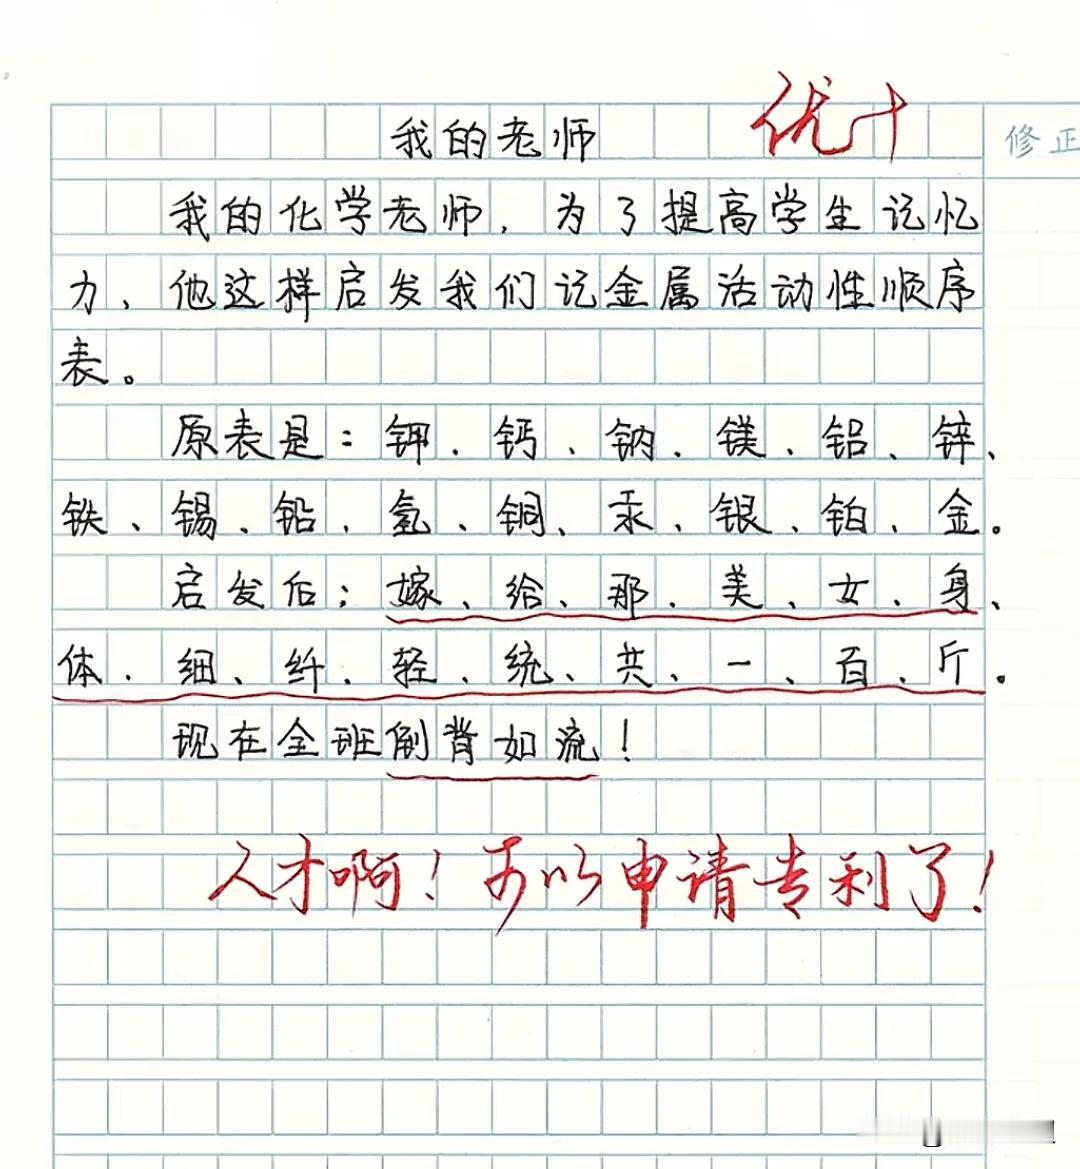 我的老师
优+
修正
我的化学老师，为了提高学生记忆
力、他这样启发我们记金属活动性顺序
表。
原表是：钾、钙、钠、镁、铝、锌、
铁、锡、铅、氢、铜、汞、银、铂、金。
启发后；嫁、给、那、美、女、身、
体、细、纤、轻、统、共、一、百、斤。
现在全班倒背如流！
人才啊！可以申请专利了！